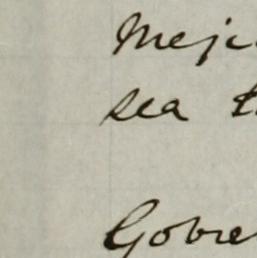 Mejc
sea t
Gobre